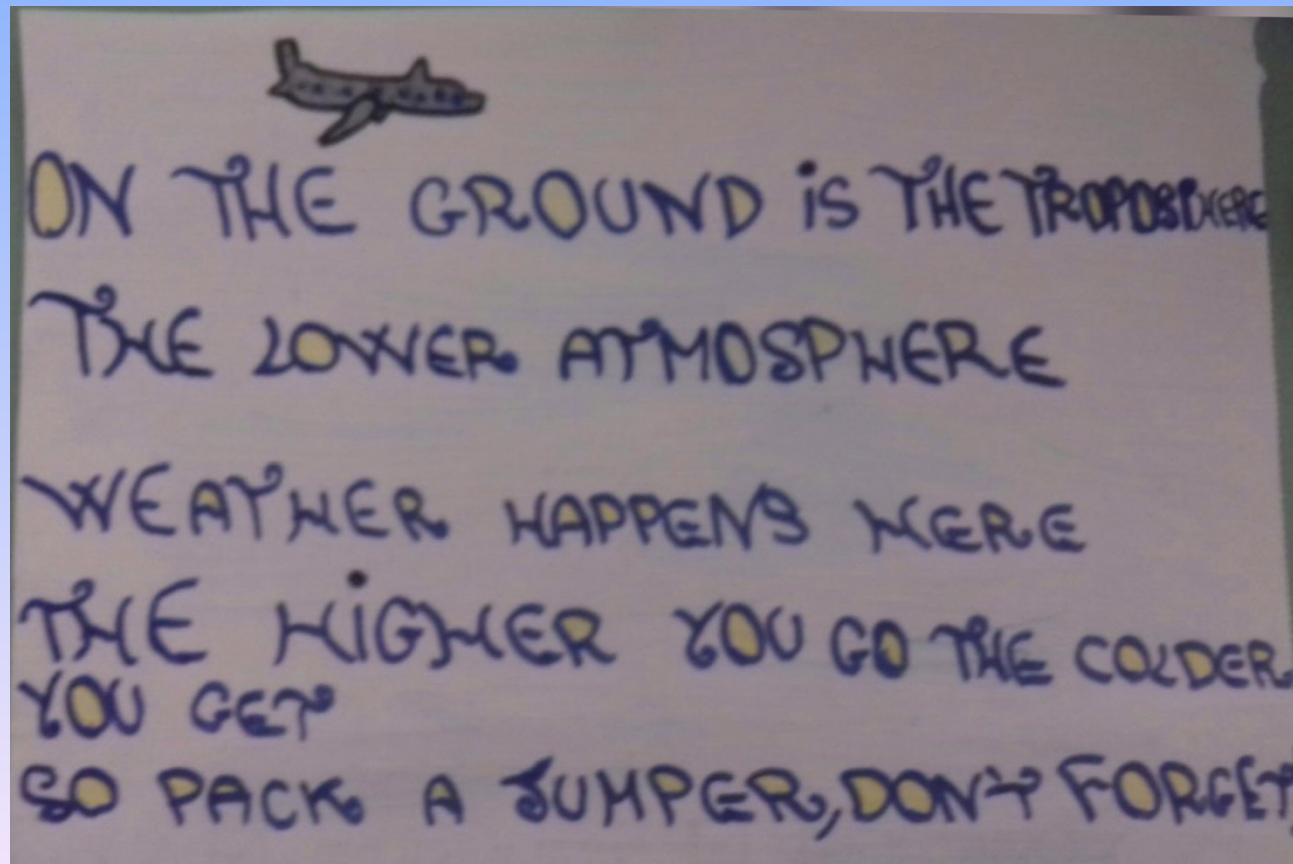 ON THE GROUND iS THE TROPOSPHERE
THE LOWER ATMOSPHERE
WEATHER HAPPENS HERE
THE HiGHER YOU GO THE COLDER
YOU GET
SO PACK A JUMPER, DON'T FORGET